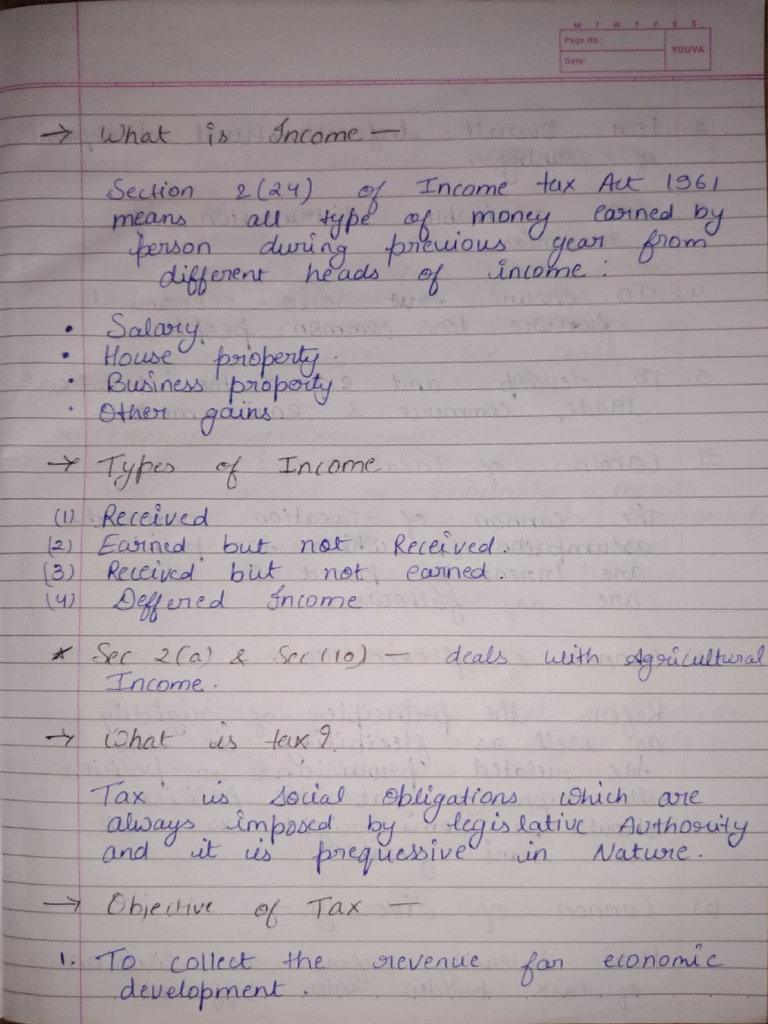 M T W T F S S
Page No.:
YOUVA
Date:
→ What is Income —
Section 2(24) of Income tax Act 1961
means all type of money earned by
person during previous year from
different heads of income :
• Salary.
• House property.
• Business property.
• Other gains
→ Types of Income
(1) Received
(2) Earned but not Received.
(3) Received but not earned.
(4) Deffered Income
* Sec 2(a) & Sec(10) — deals with Agricultural
Income.
→ What is tax?
Tax is social obligations which are
always imposed by legislative Authority
and it is prequessive in Nature.
→ Objective of Tax —
1. To collect the revenue for economic
development.